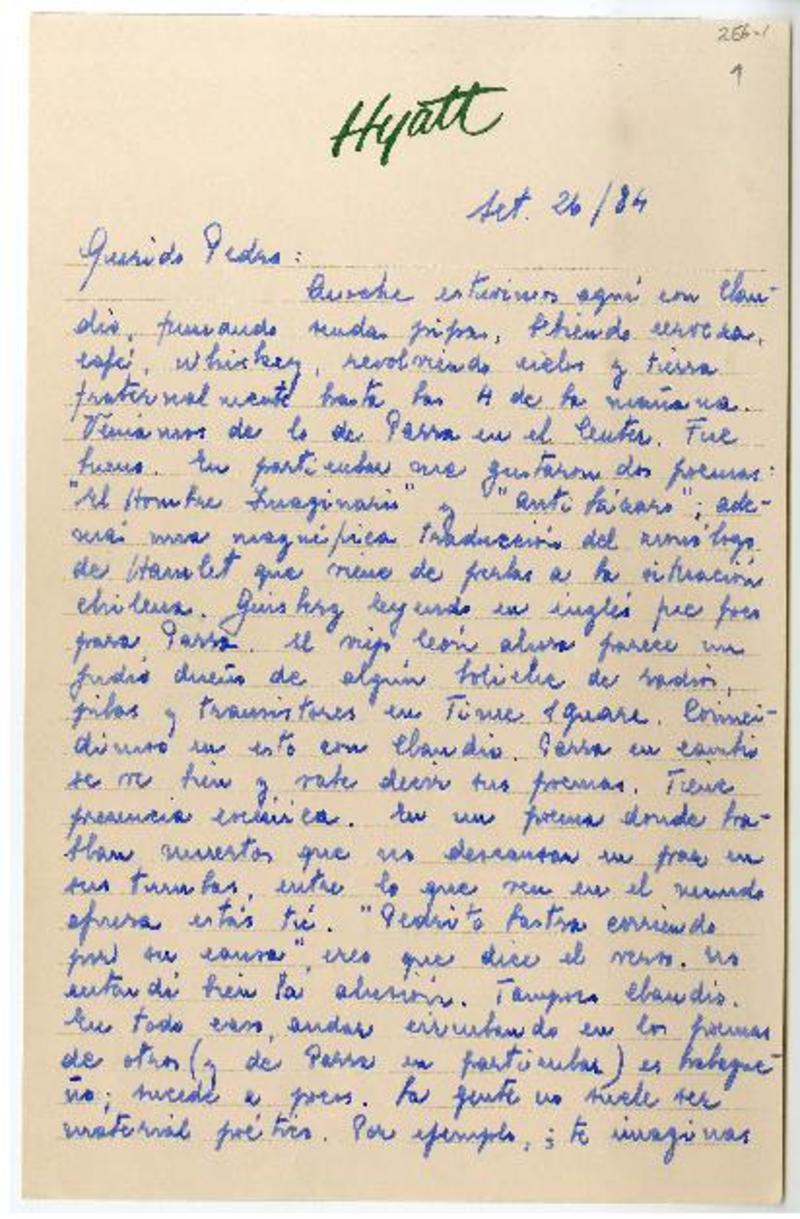 256-1
1
Hyatt
Set. 26/84
Querido Pedro:
Anoche estuvimos aquí con Clau-
dio, fumando sendas pipas, bebiendo cerveza,
café, whiskey, revolviendo cielos y tierra
fraternalmente hasta las 4 de la mañana.
Veníamos de lo de Parra en el Center. Fue
bueno. En particular me gustaron dos poemas:
"El Hombre Imaginario" y "Anti Lázaro"; ade-
más una magnífica traducción del monólogo
de Hamlet que viene de perlas a la situación
chilena. Ginsberg leyendo en inglés fue poco
para Parra. El viejo león ahora parece un
judío dueño de algún boliche de radios,
pilas y transistores en Time Square. Coinci-
dimos en esto con Claudio. Parra en cambio
se ve bien y sabe decir sus poemas. Tiene
presencia escénica. En un poema donde ha-
blan muertos que no descansan en paz en
sus tumbas, entre lo que ven en el mundo
afuera estás tú. "Pedrito Lastra corriendo
por su causa", creo que dice el verso. No
entendí bien la alusión. Tampoco Claudio.
En todo caso, andar circulando en los poemas
de otros (y de Parra en particular) es halague-
ño; sucede a pocos. La gente no suele ser
material poético. Por ejemplo, ¿te imaginas